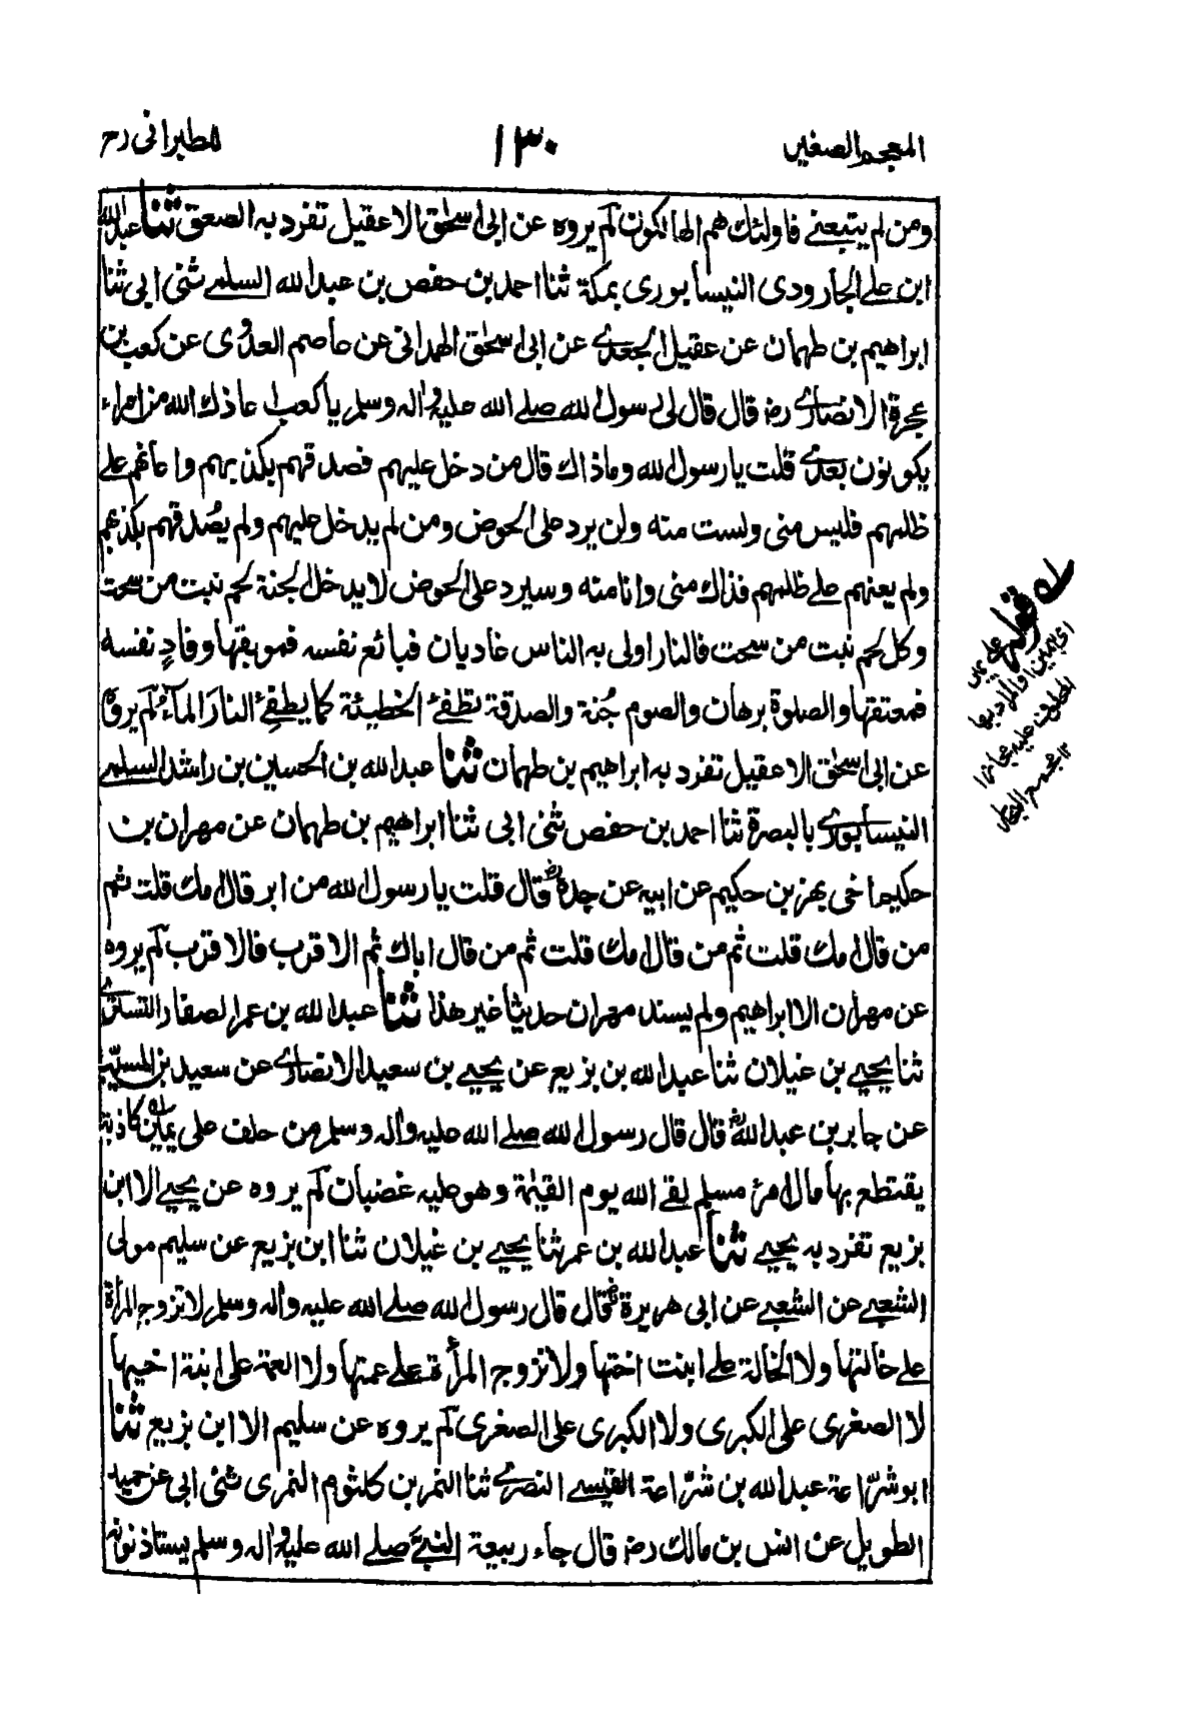 المعجم الصغير
١٣٠
للطبرانی رح
ومن لم يتبعنے فاولئك هم الهالكون لم يروه عن ابی اسحٰق الا عقيل تفرد به الصعق ثنا عبدالله
ابن علے الجارودی النيسابوری بمكة ثنا احمد بن حفص بن عبد الله السلمے ثنی ابی ثنا
ابراهيم بن طهمان عن عقيل الجعدے عن ابی اسحٰق الهمدانی عن عاصم العدوی عن كعب بن
عجرة الانصارے رضہ قال قال لی رسول الله صلے الله عليه واٰله وسلم يا كعب اعاذك الله من امراء
يكونون بعدے قلت يا رسول الله وما ذاك قال من دخل عليهم فصدقهم بكذبهم واعانهم علے
ظلمهم فليس منی ولست منه ولن يرد علی الحوض ومن لم يدخل عليهم ولم يُصدقهم بكذبهم
ولم يعنهم علے ظلمهم فذاك منی وانا منه وسيرد علی الحوض لا يدخل الجنة لحم نبت من سحت
وكل لحم نبت من سحت فالنار اولی به الناس غاديان فبائع نفسه فموبقها وفادٍ نفسه
فمعتقها والصلوة برهان والصوم جُنة والصدقة تطفئ الخطيئة كما يطفِئُ النارَ الماءُ لم يروه
عن ابی اسحٰق الا عقيل تفرد به ابراهيم بن طهمان ثنا عبد الله بن الحسين بن راشد السلمے
النيسابورے بالبصرة ثنا احمد بن حفص ثنی ابی ثنا ابراهيم بن طهمان عن مهران بن
حكيم اخی بهز بن حكيم عن ابيه عن جده رض قال قلت يا رسول الله من ابر قال امك قلت ثم
من قال امك قلت ثم من قال امك قلت ثم من قال اباك ثم الاقرب فالاقرب لم يروه
عن مهران الا ابراهيم ولم يسند مهران حديثا غير هذا ثنا عبد الله بن عمر الصفار التسترے
ثنا يحيے بن غيلان ثنا عبد الله بن بزيع عن يحيے بن سعيد الانصارے عن سعيد بن المسيّب
عن جابر بن عبد الله رض قال قال رسول الله صلے الله عليه واٰله وسلم من حلف علی يمين كاذبة
يقتطع بها مال امرئ مسلم لقے الله يوم القيٰمة وهو عليه غضبان لم يروه عن يحيے الا ابن
بزيع تفرد به يحيے ثنا عبد الله بن عمر ثنا يحيے بن غيلان ثنا ابن بزيع عن سليم مولی
الشعبے عن الشعبے عن ابی هريرة رض قال قال رسول الله صلے الله عليه واٰله وسلم لا تزوج المرأة
علے خالتها ولا الخالة علے ابنت اختها ولا تزوج المرأة علے عمتها ولا العمة علی ابنة اخيها
لا الصغری علی الكبری ولا الكبری علی الصغری لم يروه عن سليم الا ابن بزيع ثنا
ابو شرّاعة عبد الله بن شرّاعة القيسے النصرے ثنا النمر بن كلثوم النمری ثنی ابی عن حميد
الطويل عن انس بن مالك رضہ قال جاء ربيعة النبیَّ صلے الله عليه واٰله وسلم يستاذنونه
قوله
علی يمين
المحلوف عليه مجازا
١٢ مجمع البحار